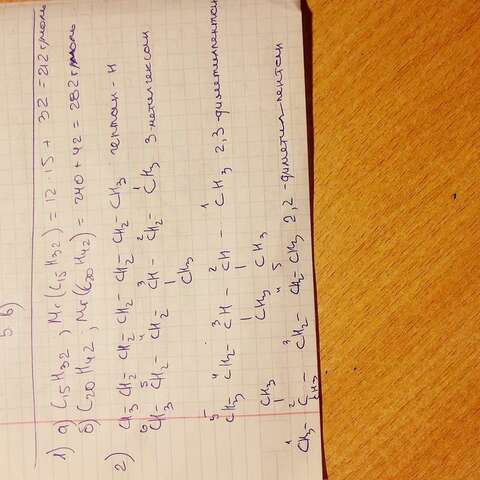 5 в)
1) а) C15H32 ; Mr(C15H32) = 12·15 + 32 = 212 г/моль
б) C20H42 ; Mr(C20H42) = 240 + 42 = 282 г/моль
2) CH3 - CH2 - CH2 - CH2 - CH2 - CH2 - CH3 гептан - н
6 5 4 3 2 1
CH3 - CH2 - CH2 - CH - CH2 - CH3 3-метилгексан
CH3
5 4 3 2 1
CH3 - CH2 - CH - CH - CH3 2,3-диметилпентан
CH3 CH3
CH3
1 2 3 4 5
CH3 - C - CH2 - CH2 - CH3 2,2-диметилпентан
CH3